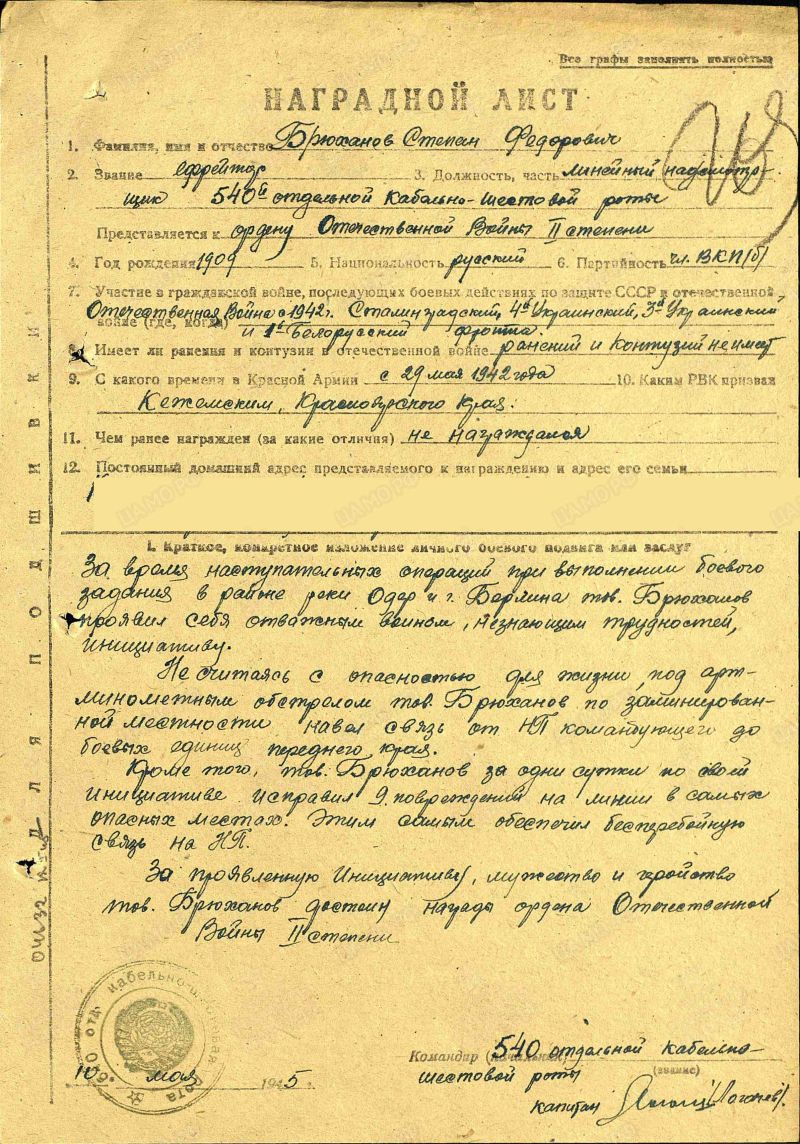 Все графы заполнять полностью
НАГРАДНОЙ ЛИСТ
1. Фамилия, имя и отчество Брюханов Степан Федорович
2. Звание ефрейтор 3. Должность, часть линейный надсмотр-
щик 540й отдельной кабельно-шестовой роты
Представляется к ордену Отечественной Войны II степени
4. Год рождения 1909 5. Национальность русский 6. Партийность чл. ВКП(б)
7. Участие в гражданской войне, последующих боевых действиях по защите СССР и отечественной
Отечественная Война с 1942 г. Сталинградский, 4й Украинский, 3й Украинский
войне (где, когда) и 1й Белорусский фронта.
8. Имеет ли ранения и контузии в отечественной войне ранений и контузий не имеет
9. С какого времени в Красной Армии с 29 мая 1942 года 10. Каким РВК призван
Кежемским, Красноярского Края.
11. Чем ранее награжден (за какие отличия) не награждался
12. Постоянный домашний адрес представляемого к награждению и адрес его семьи
I. Краткое, конкретное изложение личного боевого подвига или заслуг
За время наступательных операций при выполнении боевого
задания в районе реки Одер и г. Берлина тов. Брюханов
проявил себя отважным воином, незнающим трудностей,
инициативу.
Не считаясь с опасностью для жизни под арт-
минометным обстрелом тов. Брюханов по заминирован-
ной местности навел связь от НП командующего до
боевых единиц переднего края.
Кроме того, тов. Брюханов за одни сутки по своей
инициативе исправил 9 повреждений на линии в самых
опасных местах. Этим самым обеспечил бесперебойную
связь на НП.
За проявленную инициативу, мужество и геройство
тов. Брюханов достоин награды ордена Отечественной
Войны II степени
Командир (начальник) 540 отдельной кабельно-
(звание)
шестовой роты
10 мая 1945
капитан
ДЛЯ ПОДШИВКИ
540 отд. кабельно-шестовая рота
ЦАМО РФ